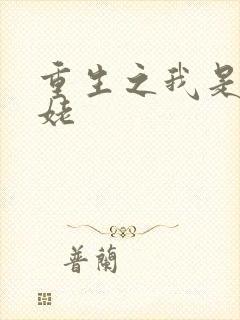 重生之我是
姥
普蘭